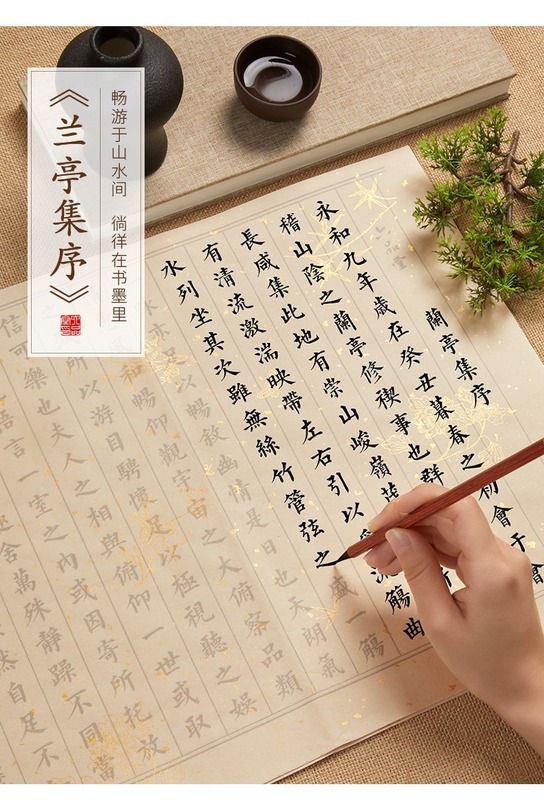 《兰亭集序》
畅游于山水间 徜徉在书墨里
蘭亭集序
永和九年歲在癸丑暮春之初會于會
稽山陰之蘭亭修禊事也群
長咸集此地有崇山峻嶺茂
有清流激湍映帶左右引以為流觴曲
水列坐其次雖無絲竹管弦之盛一觴
以暢敘幽情是日也天朗氣
和暢仰觀宇宙之大俯察品類
所以游目騁懷足以極視聽之娛
信可樂也夫人之相與俯仰一世或取
悟言一室之內或因寄所托放
舍萬殊靜躁不同
然自足不